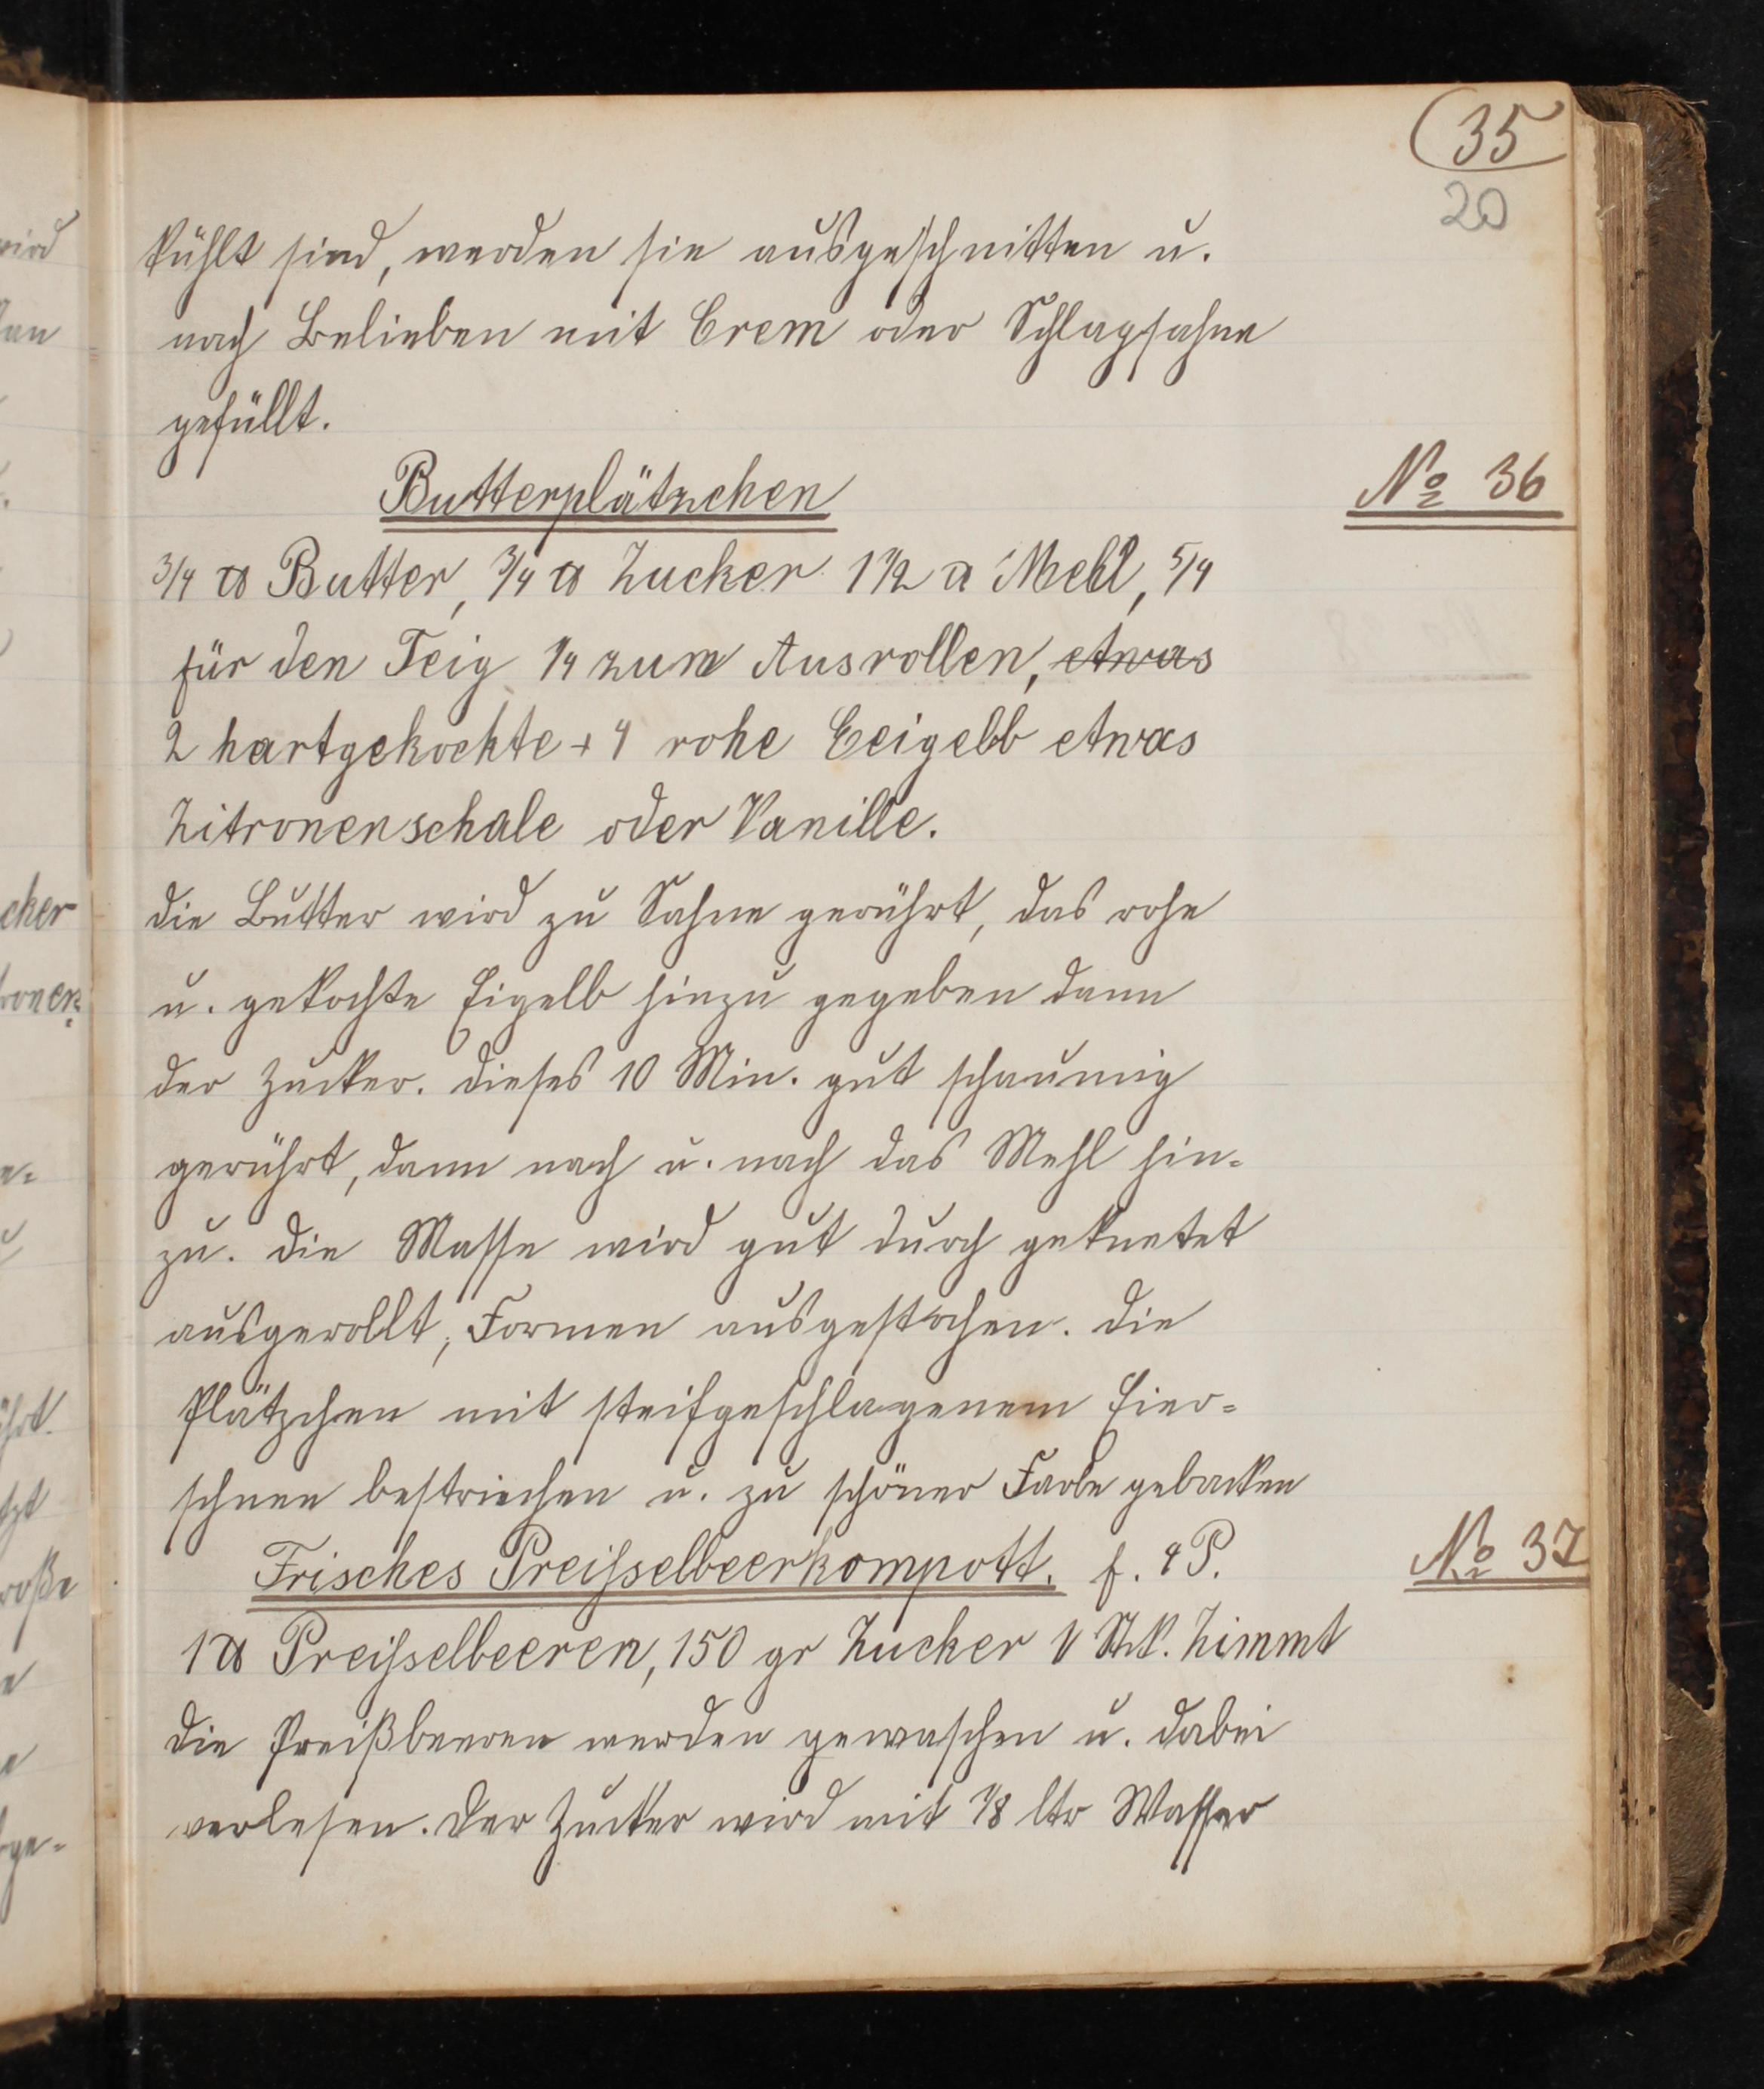 35
20
kühlt sind, werden sie ausgeschnitten u.
nach Belieben mit Crem oder Schlagsahne
gefüllt.
Butterplätzchen
No 36
3/4 ℔ Butter, 3/4 ℔ Zucker 1 1/2 ℔ Mehl, 5/4
für den Teig 1/4 zum Ausrollen, etwas
2 hartgekochte + 4 rohe Eeigelb etwas
Zitronenschale oder Vanille.
die Butter wird zu Sahne gerührt, das rohe
u. gekochte Eigelb hinzu gegeben dann
der Zucker. dieses 10 Min. gut schaumig
gerührt, dann nach u. nach das Mehl hin-
zu. die Masse wird gut durch geknetet
ausgerollt, Formen ausgestochen. die
Plätzchen mit steifgeschlagenem Eier-
schnee bestriechen u. zu schöner Farbe gebacken
Frisches Preisselbeerkompott. f. 4 P.
No 37
1 ℔ Preisselbeeren, 150 gr Zucker 1 Stk. Zimmt
die Preißbeeren werden gewaschen u. dabei
verlesen. Der Zucker wird mit 1/8 ltr Wasser